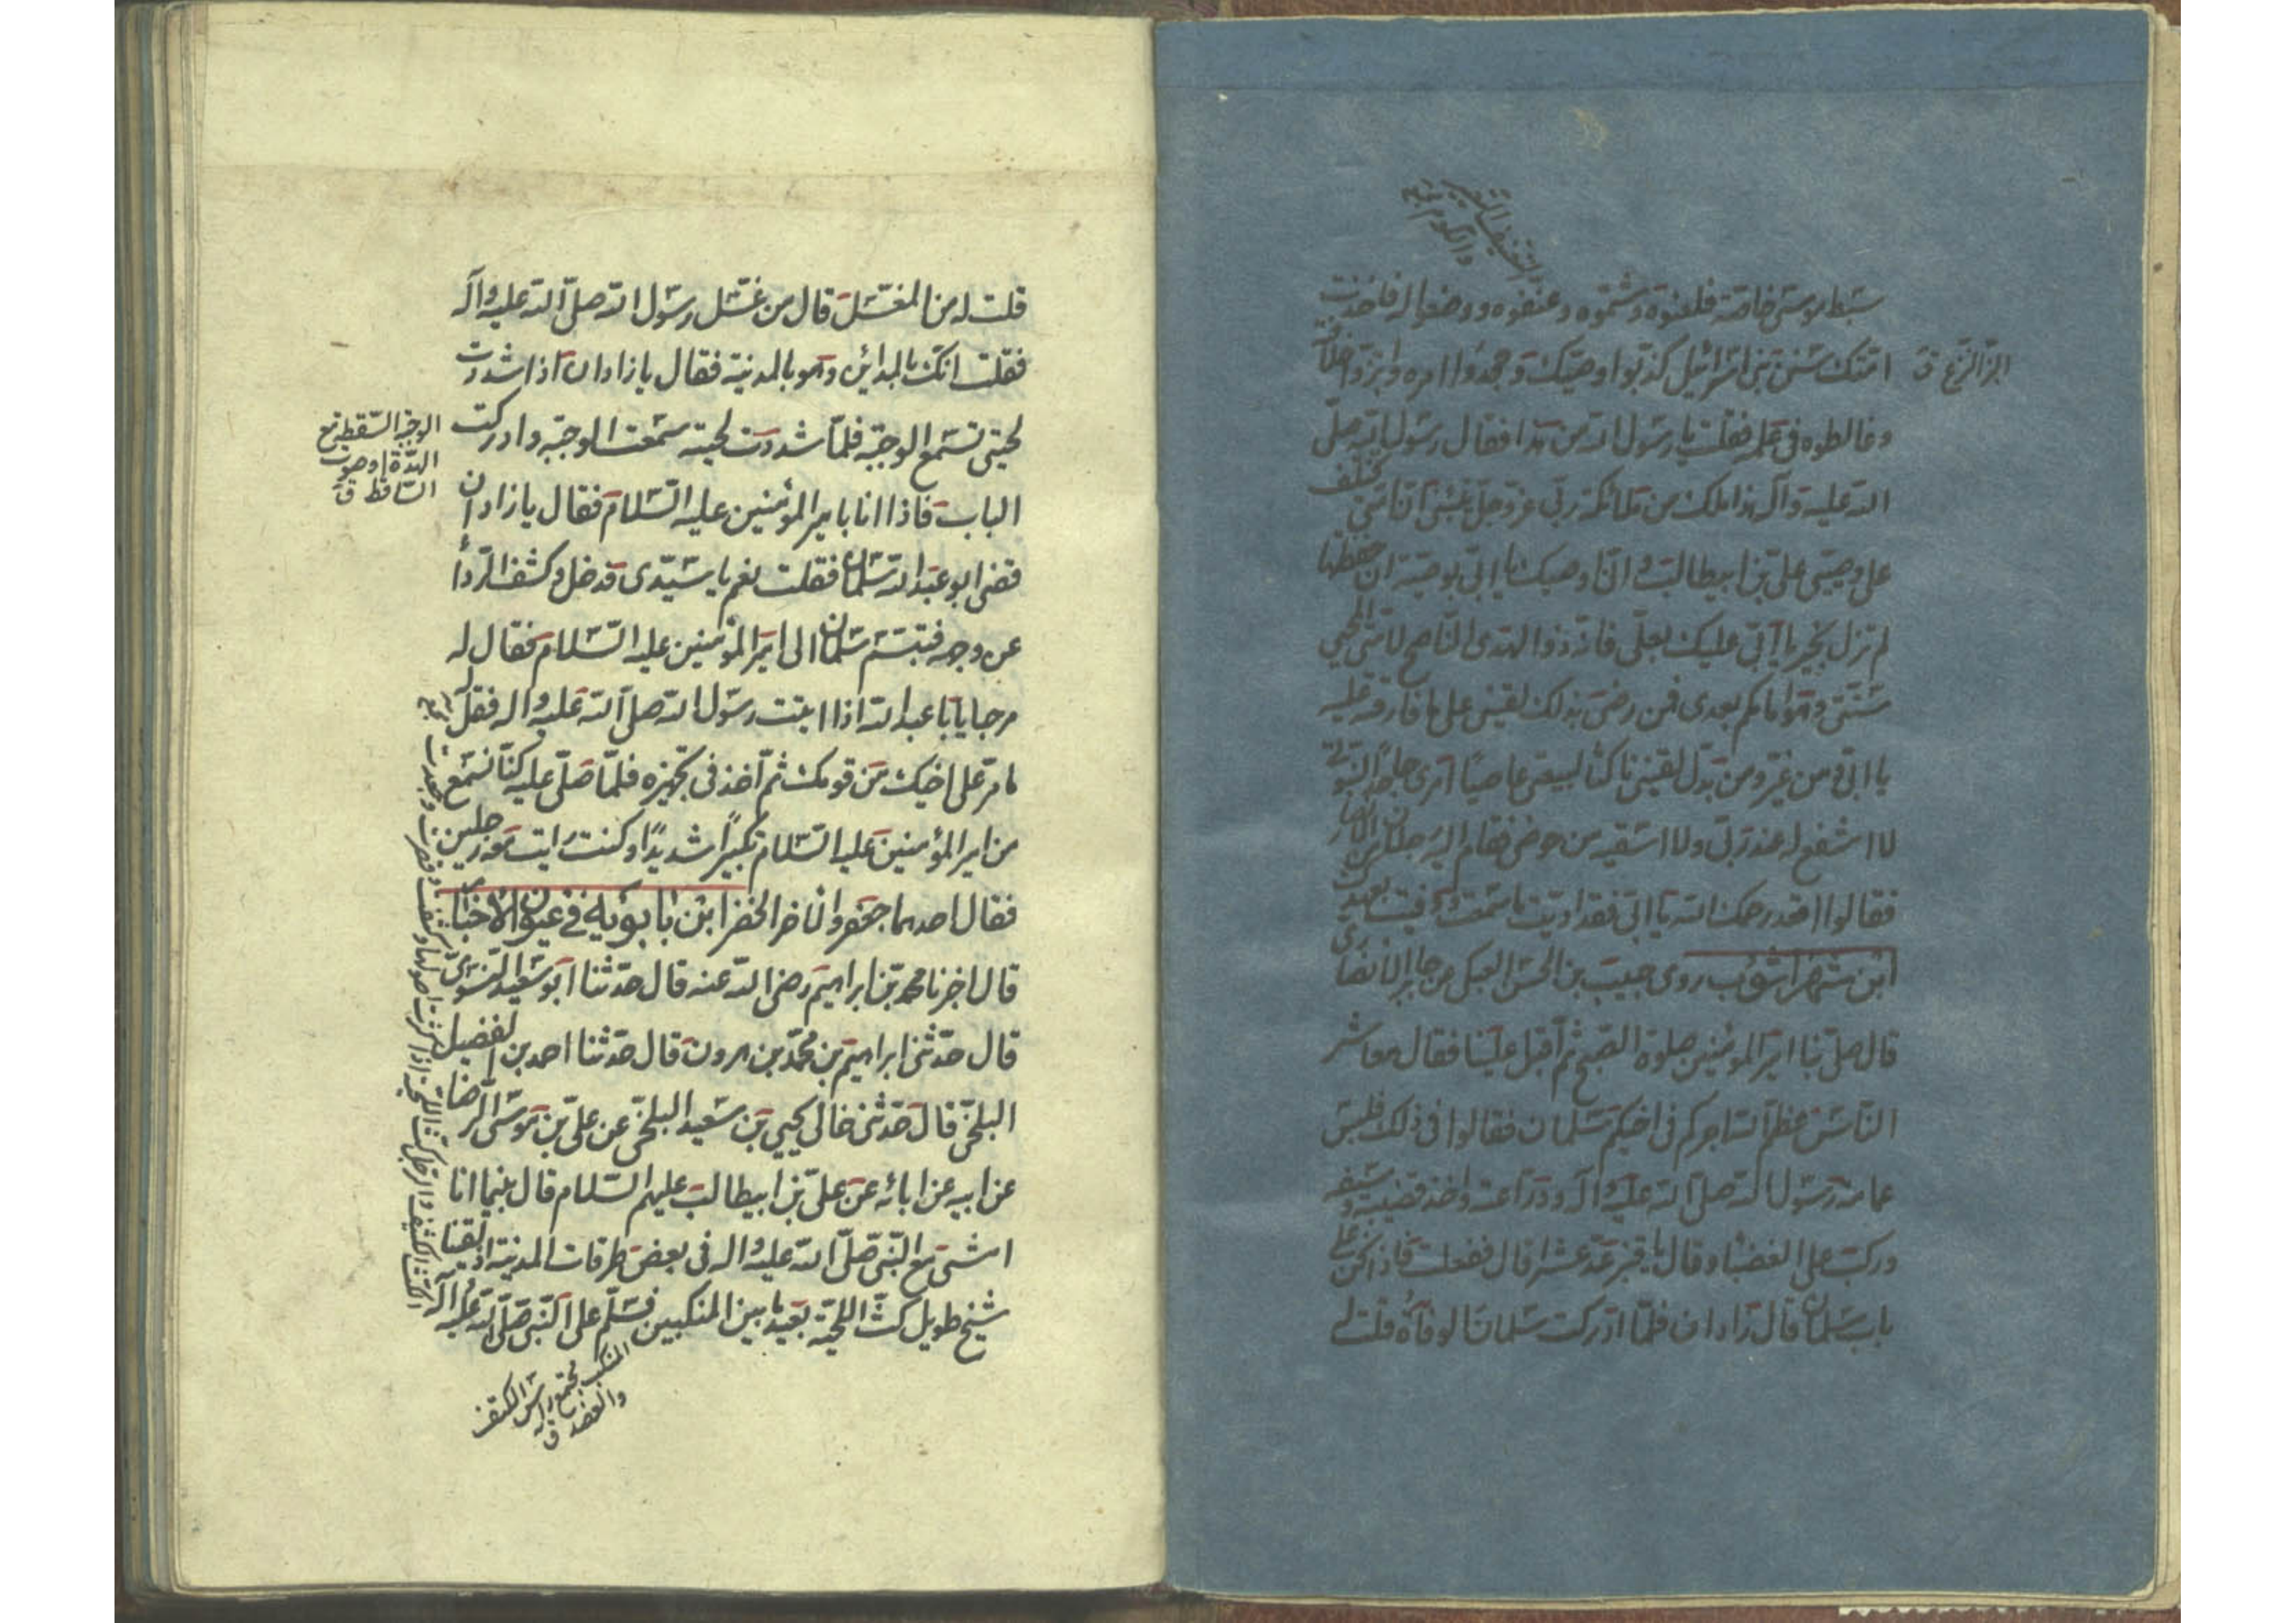 سبط موسى خاصة فلعنوه وشتموه وعنفوه ووضعوا له فاخذت
امتك سنن بني اسرائيل كذبوا وصيك وجحدوا امره وابتزوا خلافته
البز النزع ق
وغالطوه في علمه فقلت يا رسول الله من هذا فقال رسول الله صلى
الله عليه وآله هذا ملك من ملائكة ربي عز وجل ينبئني ان امتي تختلف
على وصيي علي بن ابيطالب واني اوصيك يا ابي بوصية ان حفظتها
لم تزل بخير يا ابي عليك بعلي فانه ذو الهدى الناصح لامتي المحيي
سنتي وهو امامكم بعدي فمن رضي بذلك لقيني على ما فارقته عليه
يا ابي ومن غير ومن بدل لقيني ناكثا لبيعتي عاصيا امري جاحدا لنبوتي
لا اشفع له عند ربي ولا اسقيه من حوضي فقام اليه رجال من الانصار
فقالوا اقعد رحمك الله يا ابي فقد اديت ما سمعت ووفيت بعهدك
ابن شهراشوب روى حبيب بن الحسن العتكي عن جابر الانصاري
قال صلى بنا امير المؤمنين صلوة الصبح ثم اقبل علينا فقال معاشر
الناس اعظم الله اجركم في اخيكم سلمان فقالوا في ذلك فلبس
عمامة رسول الله صلى الله عليه وآله ودراعته واخذ قضيبه وسيفه
وركب على العضباء وقال يا قنبر عد عشرا قال ففعلت فاذا نحن على
باب سلمان قال زاذان فلما ادركت سلمان الوفاة قلت له
قلت له من المغسل قال من غسل رسول الله صلى الله عليه وآله
فقلت انك بالمدائن وهو بالمدينة فقال يا زاذان اذا شددت
لحيتي تسمع الوجبة فلما شددت لحيته سمعت الوجبة وادركت
الوجبة السقطة مع
الهدة او صوت
الساقط ق
الباب فاذا انا بامير المؤمنين عليه السلام فقال يا زاذان
قضى ابو عبد الله سلمان فقلت نعم يا سيدى فدخل وكشف الرداء
عن وجهه فتبسم سلمان الى امير المؤمنين عليه السلام فقال له
مرحبا يا با عبد الله اذا اتيت رسول الله صلى الله عليه واله فقل له
ما مر على اخيك من قومك ثم اخذ في تجهيزه فلما صلى عليه كنا نسمع
من امير المؤمنين عليه السلام تكبيرا شديدا وكنت رايت معه رجلين
فقال احدهما جعفر والاخر الخضر ابن بابويه في عيون الاخبار
قال اخبرنا محمد بن ابراهيم رضي الله عنه قال حدثنا ابو سعيد النسوى
قال حدثنى ابراهيم بن محمد بن هرون قال حدثنا احمد بن الفضيل
البلخي قال حدثنى خالى يحيى بن سعيد البلخي عن علي بن موسى الرضا
عن ابيه عن ابائه عن علي بن ابيطالب عليهم السلام قال بينما انا
امشى مع النبي صلى الله عليه واله في بعض طرقات المدينة اذ لقينا
شيخ طويل كث اللحية بعيد ما بين المنكبين فسلم على النبي صلى الله عليه وآله
المنكب مجتمع راس الكتف
والعضد ق